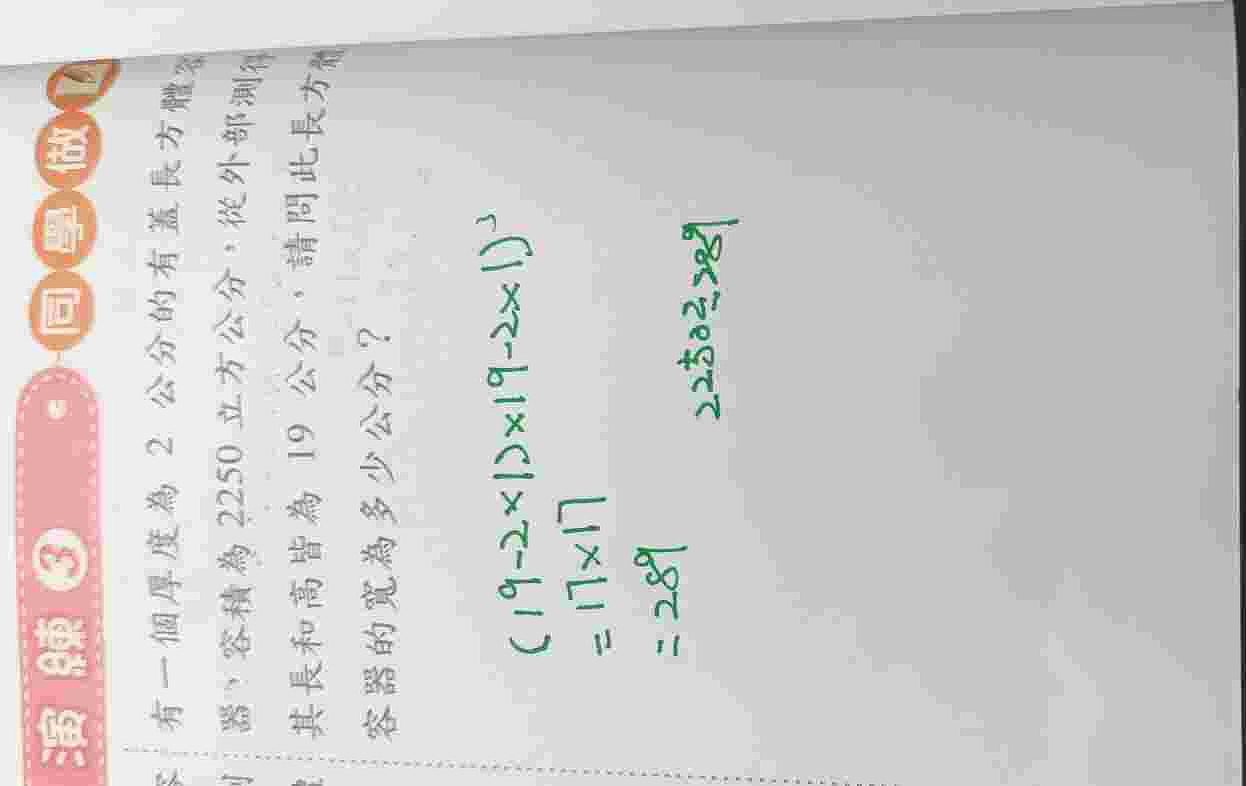 演練 3 同學做
有一個厚度為 2 公分的有蓋長方體容
器,容積為 2250 立方公分,從外部測得
其長和高皆為 19 公分,請問此長方體
容器的寬為多少公分?
(19-2×1)×19-2×1)
=17×17
=289